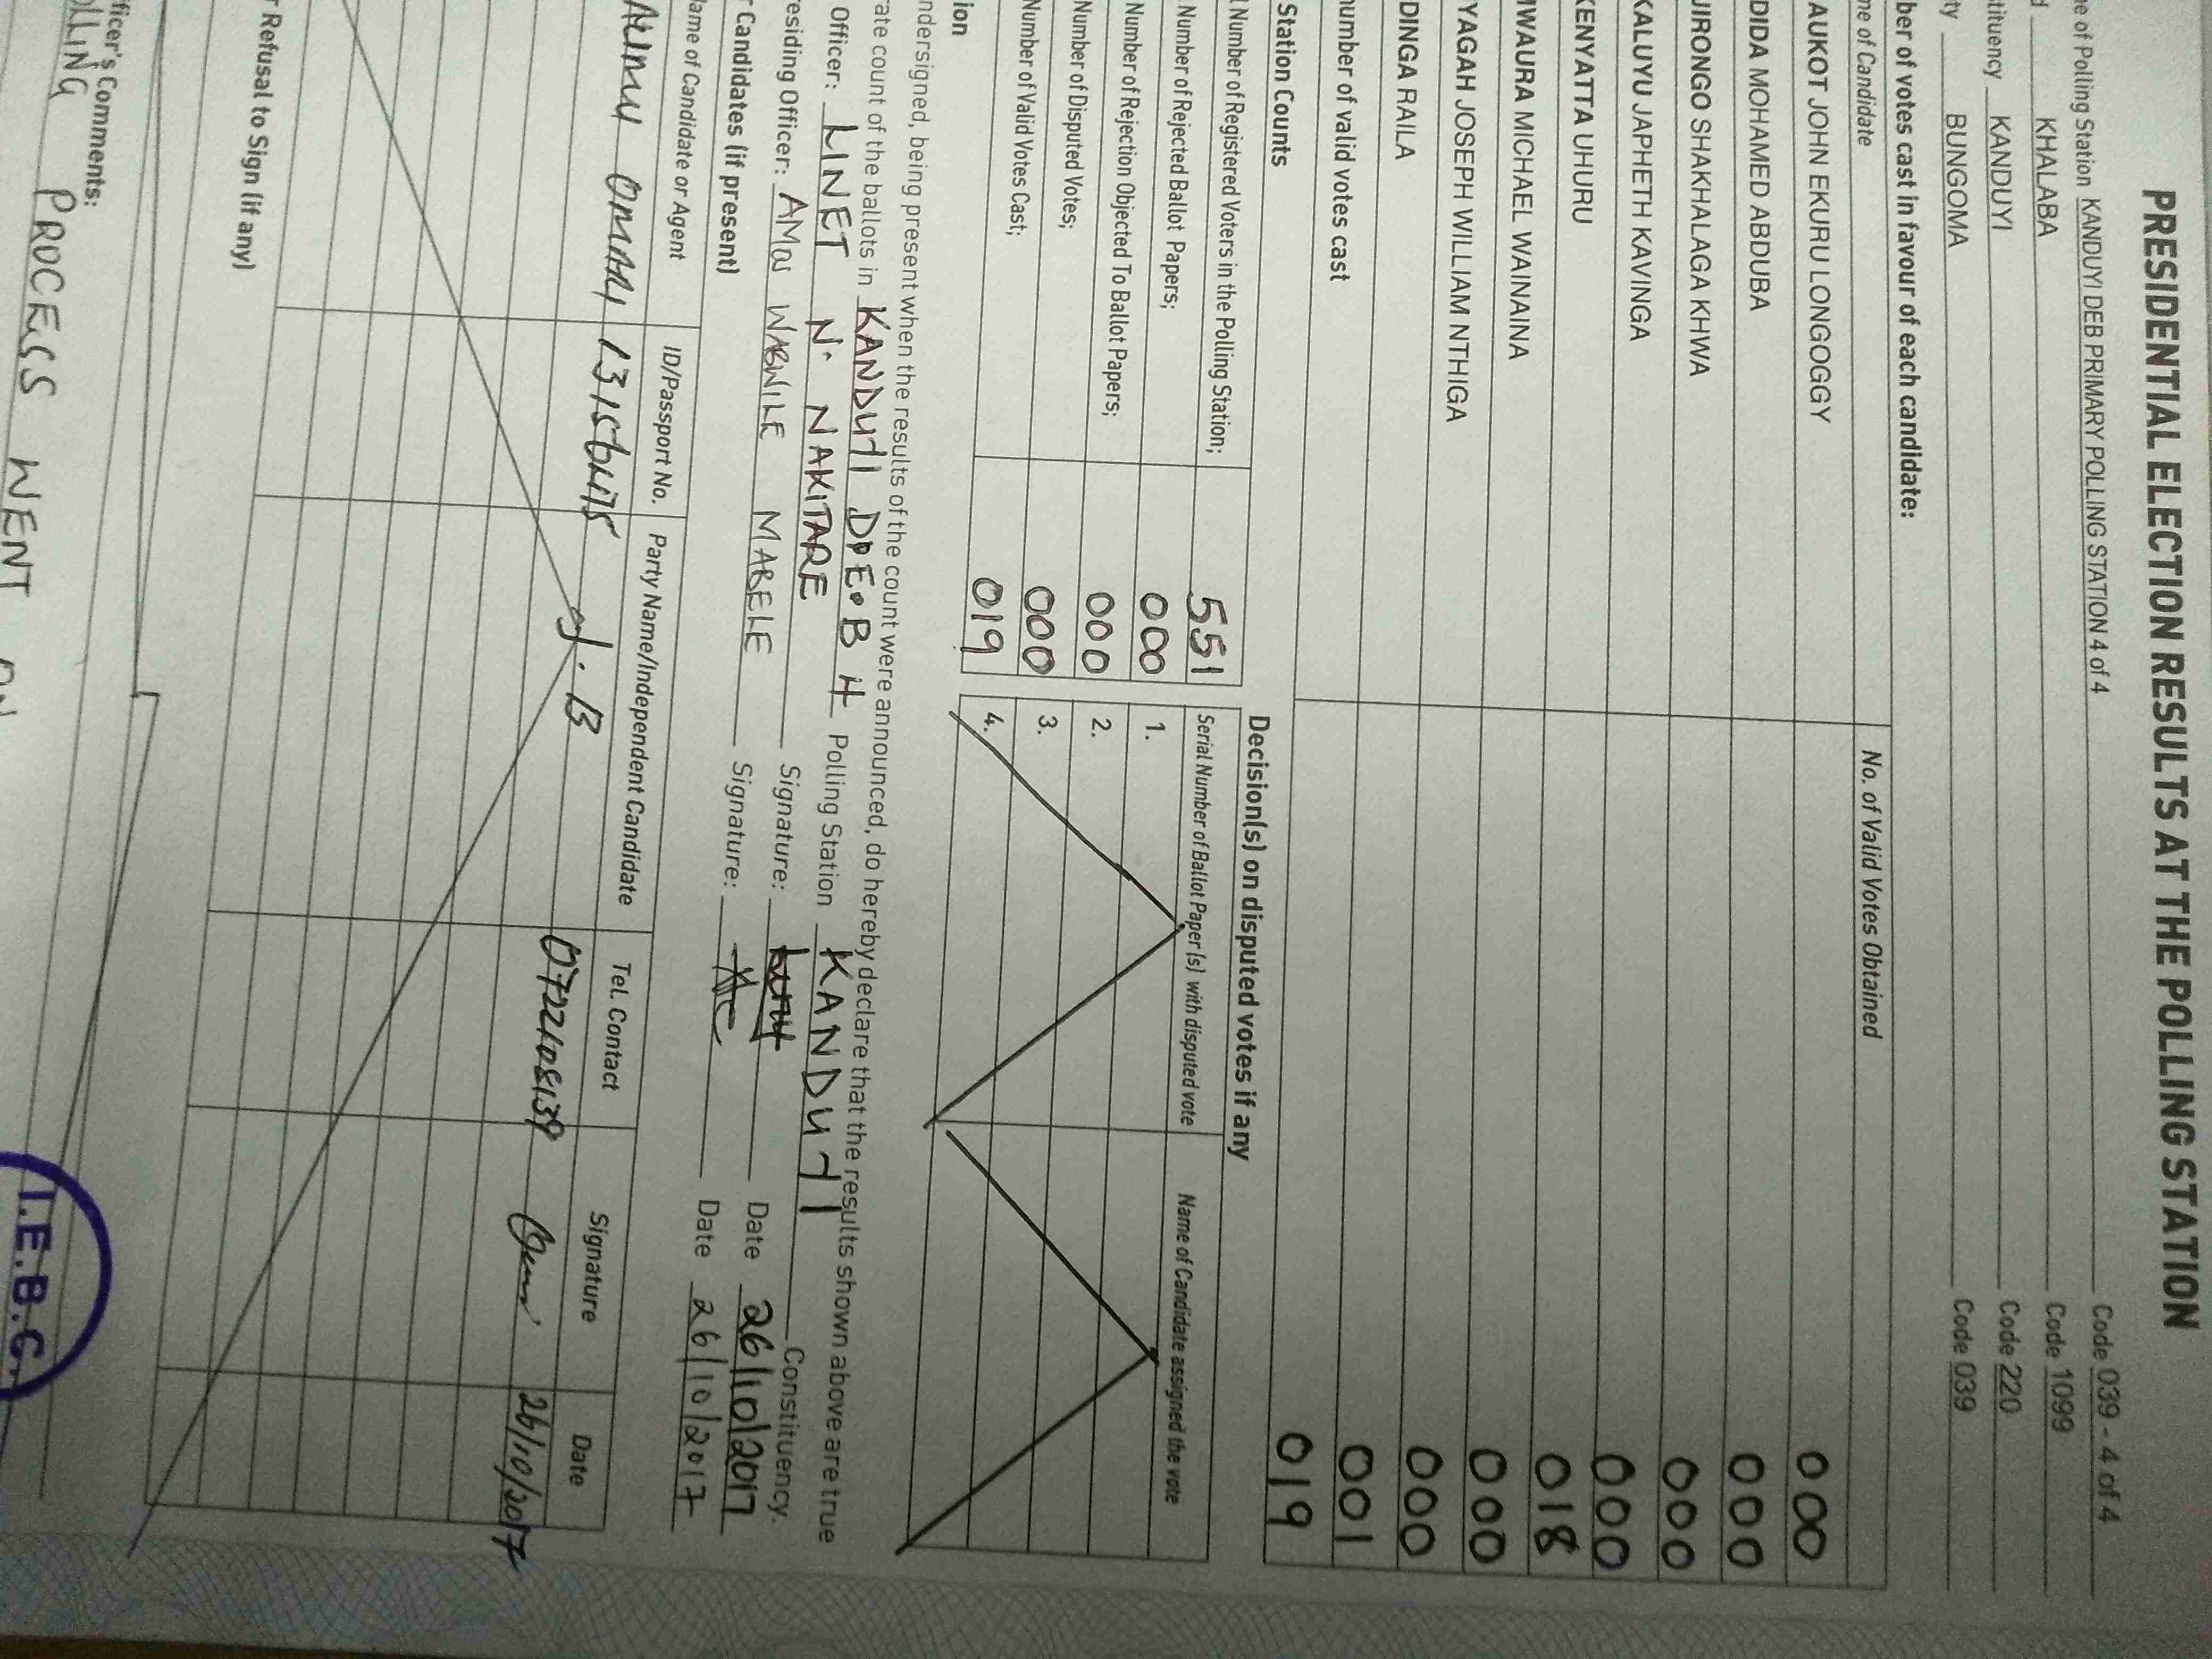 PRESIDENTIAL ELECTION RESULTS AT THE POLLING STATION
e of Polling Station KANDUYI DEB PRIMARY POLLING STATION 4 of 4 Code 039 - 4 of 4
d KHALABA Code 1099
tituency KANDUYI Code 220
ty BUNGOMA Code 039
ber of votes cast in favour of each candidate:
me of Candidate No. of Valid Votes Obtained
AUKOT JOHN EKURU LONGOGGY 000
DIDA MOHAMED ABDUBA 000
JIRONGO SHAKHALAGA KHWA 000
KALUYU JAPHETH KAVINGA 000
KENYATTA UHURU 018
MWAURA MICHAEL WAINAINA 000
YAGAH JOSEPH WILLIAM NTHIGA 000
DINGA RAILA 001
number of valid votes cast 019
Station Counts Decision(s) on disputed votes if any
Number of Registered Voters in the Polling Station; 551 Serial Number of Ballot Paper (s) with disputed vote Name of Candidate assigned the vote
Number of Rejected Ballot Papers; 000 1.
Number of Rejection Objected To Ballot Papers; 000 2.
Number of Disputed Votes; 000 3.
Number of Valid Votes Cast; 019 4.
ion
ndersigned, being present when the results of the count were announced, do hereby declare that the results shown above are true
ate count of the ballots in KANDUYI D.E.B 4 Polling Station KANDUYI Constituency.
Officer: LINET N. NAKITARE Signature: Date 26/10/2017
residing Officer: AMOS WABWILE MABELE Signature: Date 26/10/2017
r Candidates (if present)
ame of Candidate or Agent ID/Passport No. Party Name/Independent Candidate Tel. Contact Signature Date
OMARI J.B 26/10/2017
r Refusal to Sign (if any)
fficer's Comments:
OLLING PROCESS WENT ON
I.E.B.C.